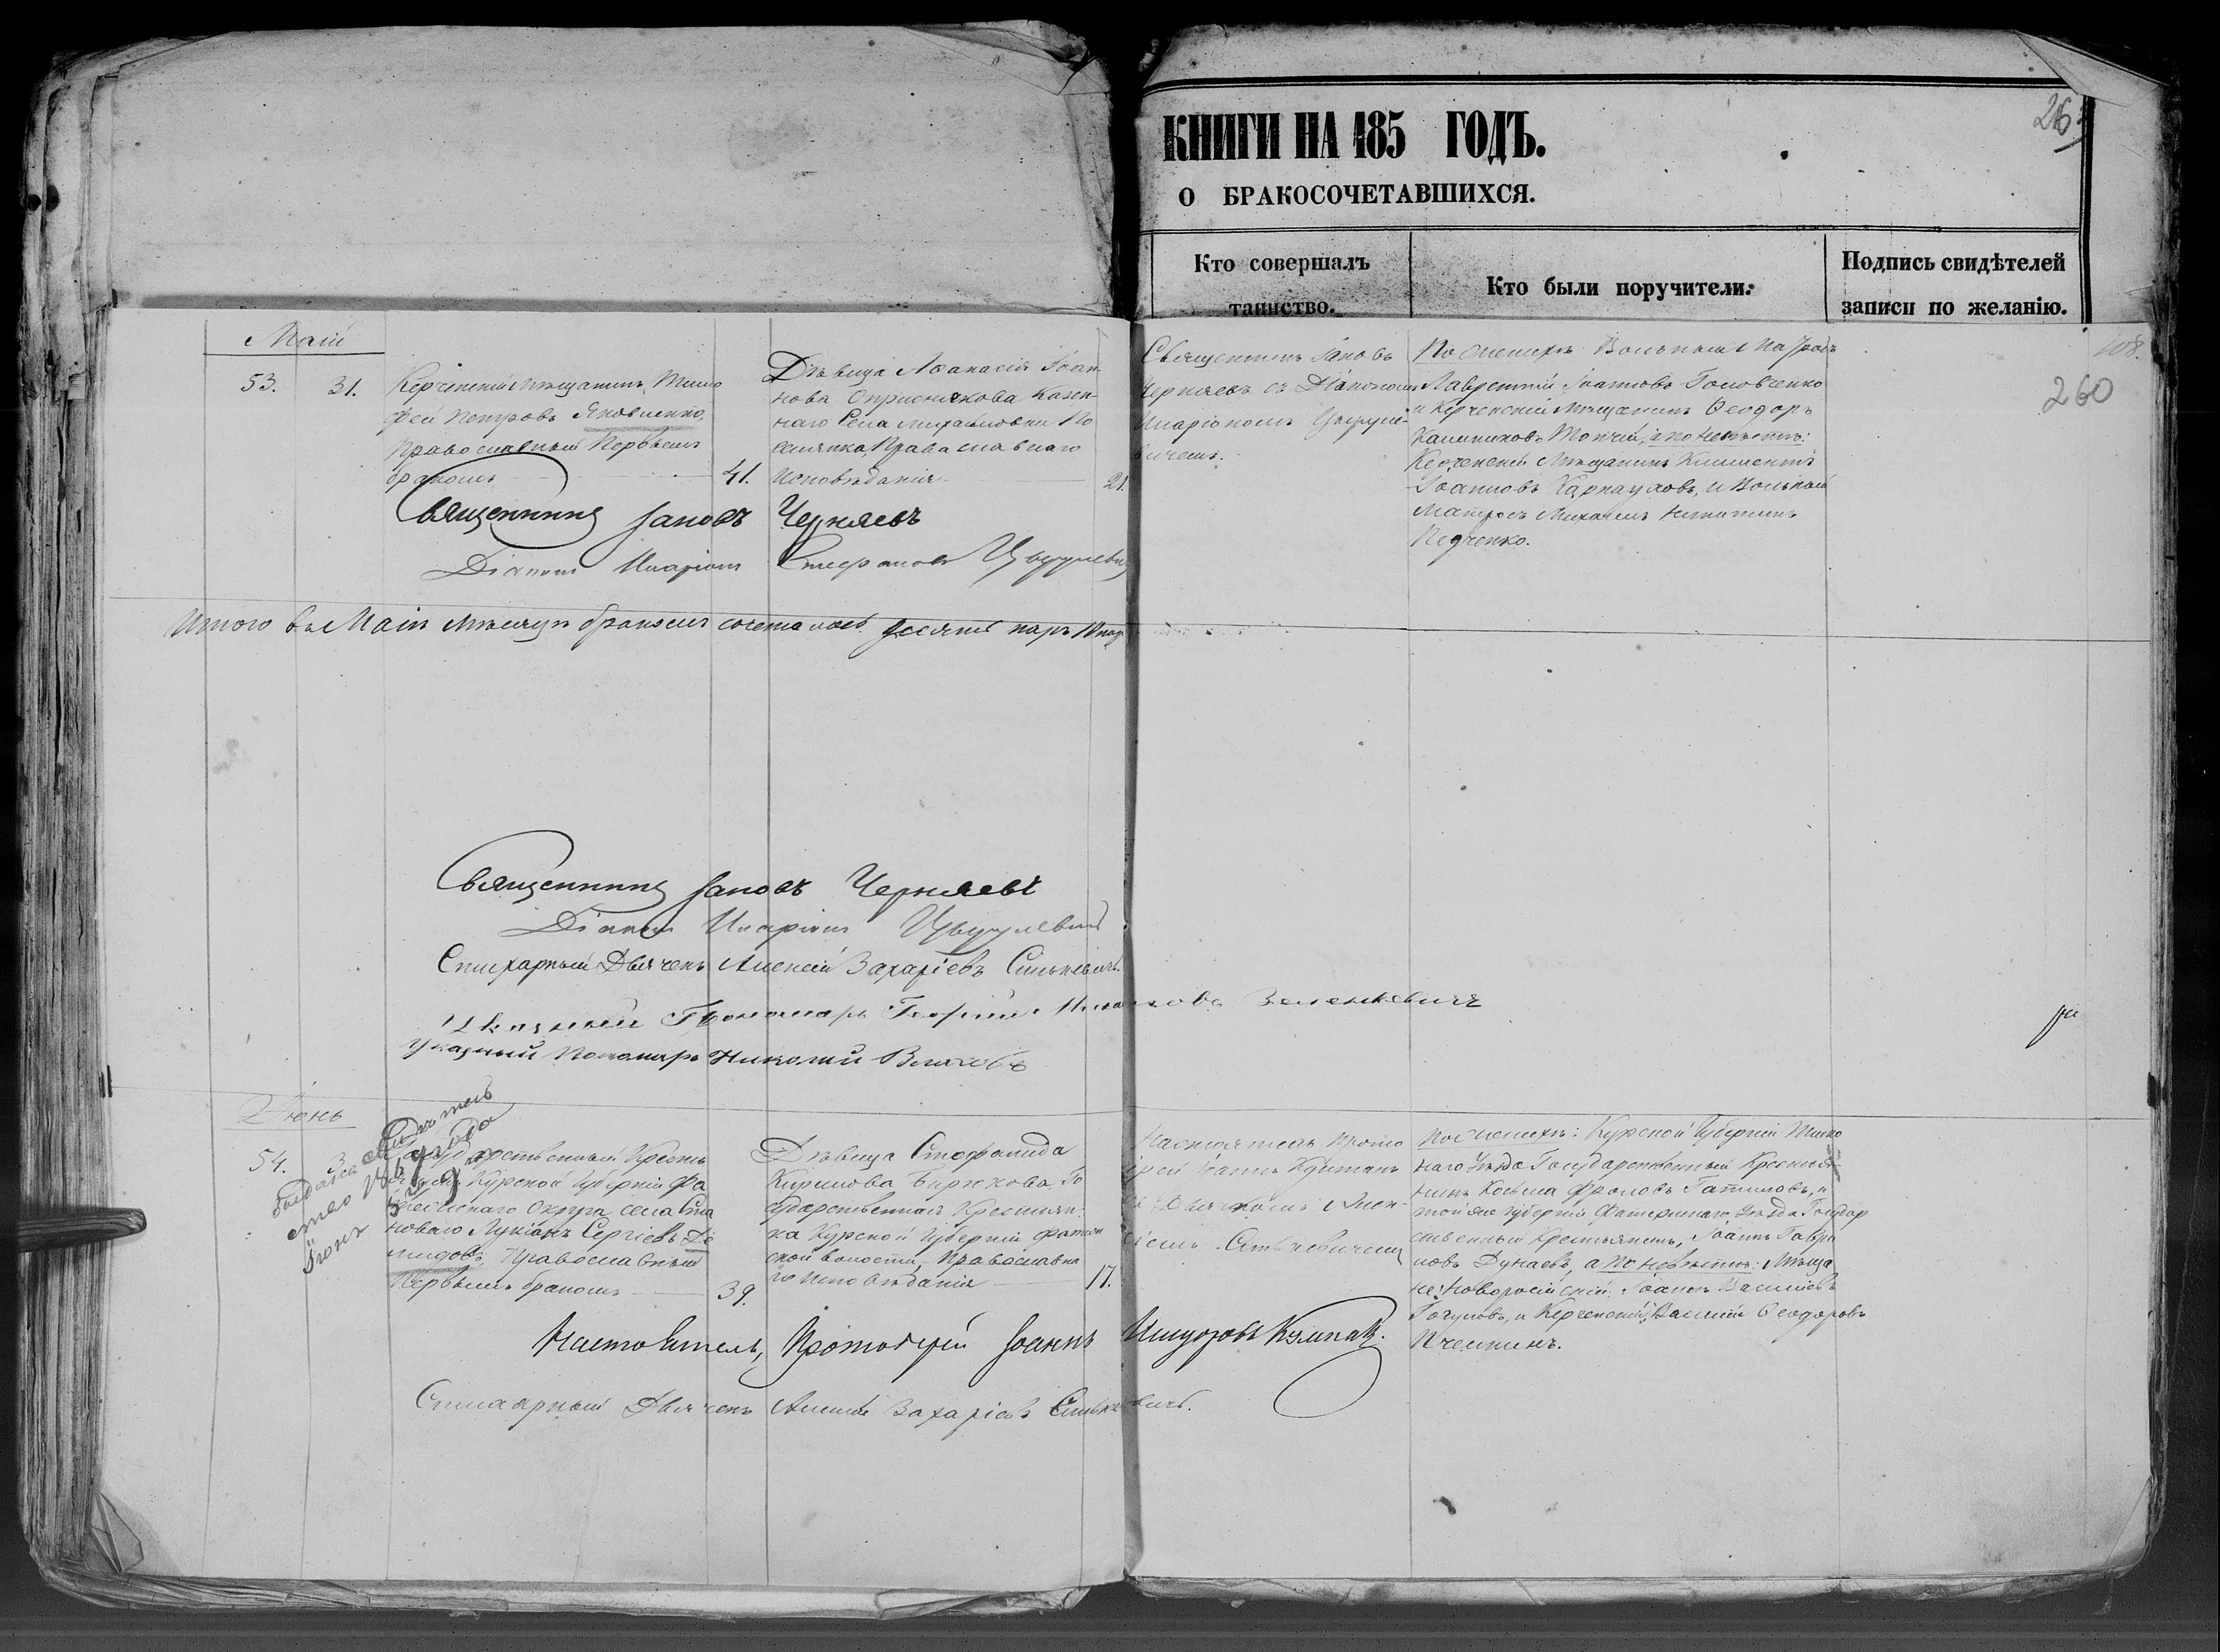 КНИГИ НА 185 ГОДЪ.
О БРАКОСОЧЕТАВШИХСЯ.
Кто совершалъ
таинство.
Кто были поручители.
Подпись свидѣтелей
записи по желанію.
260
108.
Маій
53.
31.
Керченскій Мѣщанинъ Тимо
фей Петровъ Яковленко,
Православный Первымъ
бракомъ
41.
Дѣвица Аѳанасія Іоан
нова Казен-
наго Села Михайловки По
селянка, Православнаго
Исповѣданія
21.
Священникъ Іаковъ
Черняевъ съ Діакономъ
Иларіономъ
По Женихѣ: Вольный Матрозъ
Лаврентій Іоанновъ Головченко
и Керченскій Мѣщанинъ Ѳеодоръ
Калинниковъ а по невѣстѣ:
Керченскій Мѣщанинъ Климентъ
Іоанновъ Карнауховъ, и Вольный
Матросъ Михаилъ
Педченко.
Священникъ Іаковъ Черняевъ
Діаконъ Иларіонъ Стефановъ
Итого въ Маіи Мѣсяцѣ бракомъ сочеталось десять паръ
Священникъ Іаковъ Черняевъ
Діаконъ Иларіонъ
Стихарный Дьячекъ Алексій Захаріевъ Синькевичъ.
Указный Пономарь Георгій Зеленкевичъ
Указный Пономарь Николай Влаховъ
Іюнь
54.
3
Государственный Кресть
Курской Губерніи Фа
тежскаго Округа села Ста
новаго Лукіанъ Сергіевъ Де
мидовъ, Православный
Первымъ бракомъ
39.
Дѣвица Стефанида
Кирилова Бирюкова, Го
ударственная Крестьян-
ка Курской Губерніи Фатеж
ской волости, Православна
го Исповѣданія
17.
Настоятель Прото
іерей Іоаннъ
Дьячкомъ Алек-
сіемъ Синькевичемъ
По Женихѣ: Курской Губерніи Тимс
каго Уѣзда Государственный Крестья
нинъ Козьма Фроловъ и
той же губерніи Фатежскаго Уѣзда Государ
ственный Крестьянинъ, Іоаннъ Гаври
ловъ Дунаевъ, а по невѣстѣ: Мѣща
не: Новоросійскій Іоаннъ Василіевъ
и Керченскій Василій Ѳеодоровъ
Пчелкинъ.
Настоятель, Протоіерей Іоаннъ
Стихарный Дьячекъ Алексій Захаріевъ Синькевичъ.